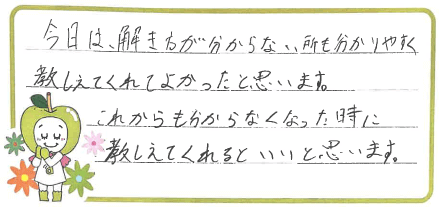 今日は、解き方が分からない所も分かりやすく
教しえてくれてよかったと思います。
これからも分からなくなった時に
教しえてくれるといいと思います。